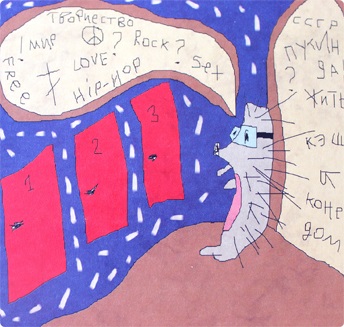 ТВОРЧЕСТВО
! МИР ? ROCK ?
FREE LOVE! Sex
HiP-HOP
1
2
3
СССР
ПУКИН
? ДА!
ЖИТЬ
КЭШ
КОНЕ
ДОМ